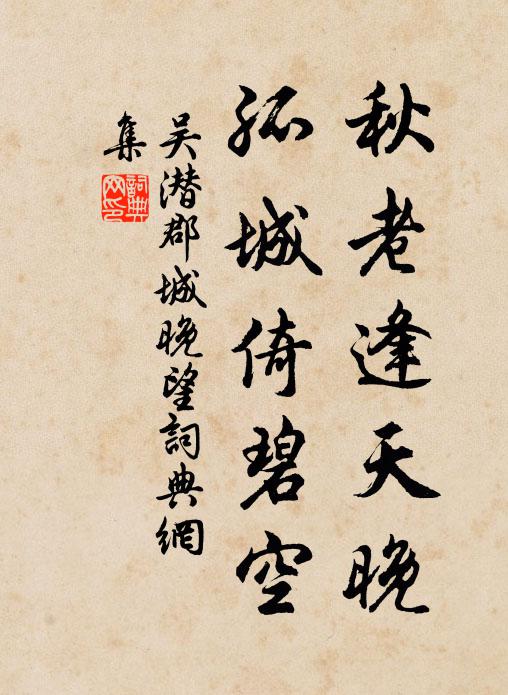 秋老逢天晚
孤城倚碧空
吴潜郡城晚望詞典網
集
詞典
网印